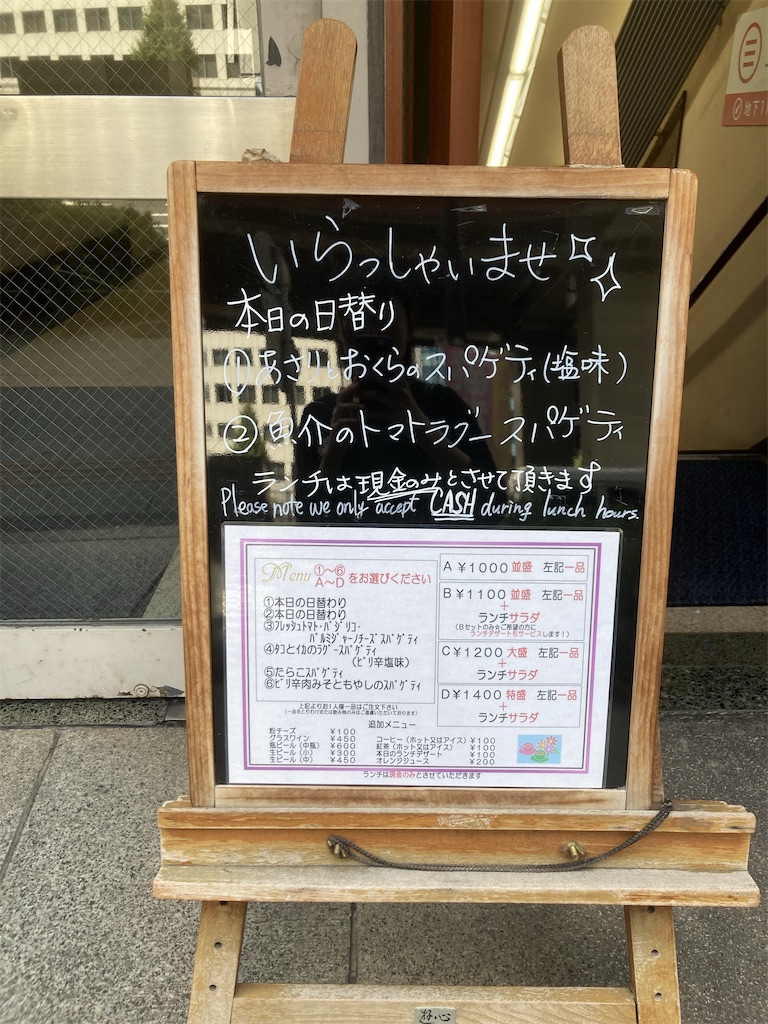 いらっしゃいませ
本日の日替り
①あさりとおくらのスパゲティ(塩味)
②魚介のトマトラグースパゲティ
ランチは現金のみとさせて頂きます
Please note we only accept CASH during lunch hours.
Menu ①～⑥ A～D をお選びください
①本日の日替わり
②本日の日替わり
③フレッシュトマト・バジリコ・
パルミジャーノチーズスパゲティ
④タコとイカのラグースパゲティ
(ピリ辛塩味)
⑤たらこスパゲティ
⑥ピリ辛肉みそともやしのスパゲティ
上記よりお1人様一品はご注文下さい
(一品をとりわけまたは飲み物のみはご遠慮いただいております)
A ¥1000 並盛 左記一品
B ¥1100 並盛 左記一品
+
ランチサラダ
(Bセットのみ☆ご希望の方に
ランチデザートもサービスします!)
C ¥1200 大盛 左記一品
+
ランチサラダ
D ¥1400 特盛 左記一品
+
ランチサラダ
追加メニュー
粉チーズ ¥100
グラスワイン ¥450
瓶ビール(中瓶) ¥600
生ビール(小) ¥300
生ビール(中) ¥450
コーヒー(ホット又はアイス) ¥100
紅茶(ホット又はアイス) ¥100
本日のランチデザート ¥100
オレンジジュース ¥200
ランチは現金のみとさせていただきます
地下1